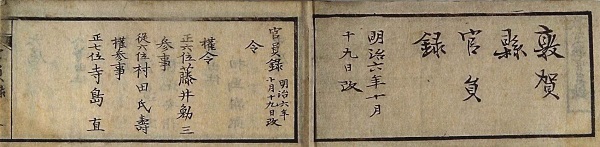 敦賀
縣
官員
録
明治六年十月
十九日改
官員録 明治六年
十月十九日改
令
權令
正六位 藤井勉三
参事
從六位 村田氏壽
權参事
正七位 寺島直